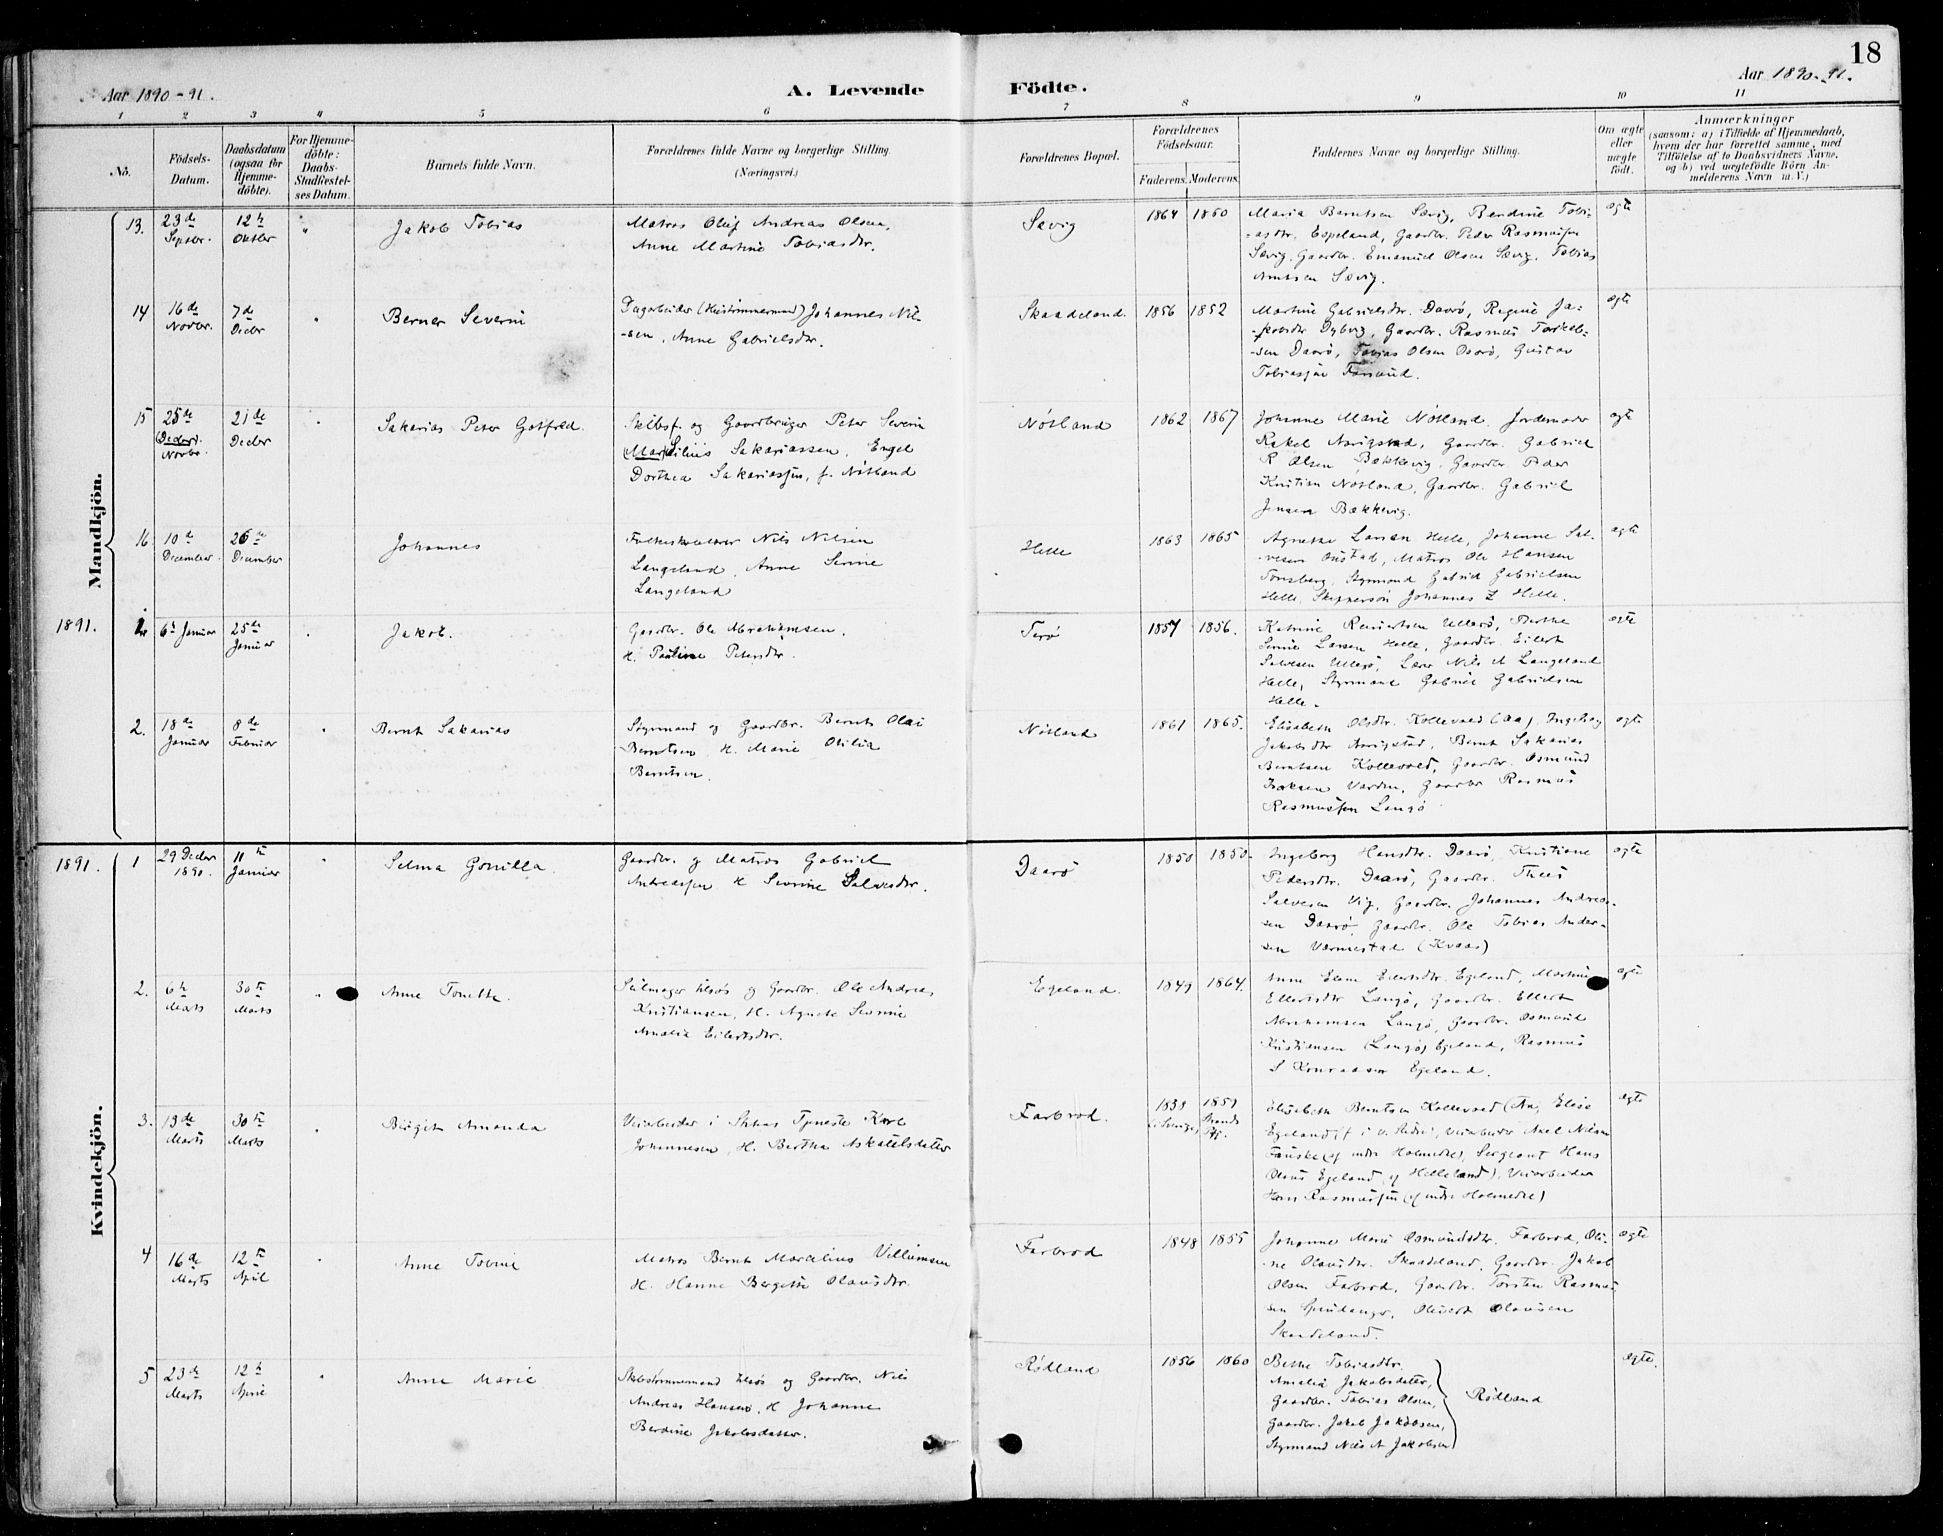 18
Aar 1890-91.
A. Levende Födte.
Aar 1890-91.
1 2 3 4 5 6 7 8 9 10 11
No.
Födsels-Datum.
Daabsdatum (ogsaa for Hjemmedöbte).
For Hjemmedöbte: Daabs-Stadfæstelses Datum.
Barnets fulde Navn.
Forældrenes fulde Navne og borgerlige Stilling.
(Næringsvei.)
Forældrenes Bopæl.
Forældrenes Födselsaar.
Faderens. Moderens.
Faddernes Navne og borgerlige Stilling.
Om ægte eller uægte födt.
Anmærkninger
(saasom: a) i Tilfælde af Hjemmedaab, hvem der har forrettet samme, med Tilföielse af to Daabsvidners Navne, og b) ved uægtefödte Börn Anmelderens Navn m. V.)
Mandkjön.
13. 23de Septbr. 12te Oktbr Jakob Tobias
Matros Oluf Andreas Olsen,
Anne Martine Tobiasdtr.
Sævig 1864 1850
Maria Berntsen Sævig, Berdine Tobi-
-asdtr. Espeland, Gaardbr. Peder Rasmussen
Sævig, Gaardbr. Emanuel Olsen Sævig, Tobias
Sævig.
ægte
14 16de Novbr. 7de Decbr Berner Severin
Dagarbeider (Hustømmermand) Johannes Nil-
-sen, Anne Gabrielsdtr.
Skaadeland. 1856 1852
Martine Gabrielsdtr. Daarø, Regine Ja-
-kobsdtr Dyberg, Gaardbr. Rasmus Torkels-
-sen Daarø, Tobias Olsen Daarø, Gustav
Tobiassen
ægte
15 25de (Decbr). Novbr. 21de Decbr Sakarias Peter Gotfred.
Skibsf. og Gaardbruger Peter Severin
(Mar)Silius Sakariassen, Engel
Dorthea Sakariassen, f. Nøtland
Nøtland 1862 1867
Johanne Marie Nøtland, Jordemoder
Rakel Aarigstad, Gaardbr. Gabriel
R Olsen Bækkevig, Gaardbr. Peder
Kristian Nøtland, Gaardbr. Gabriel
Jensen Bækkevig.
ægte
16. 10de December. 26de December Johannes
Folkeskolelærer Nils Nilsen
Langeland, Anne Serine
Langeland
Helle 1863 1865
Agnethe Larsen Helle, Johanne Sal-
-vesen Matros Ole Hansen
Tonsberg, Styrmand Gabriel Gabrielsen
Helle, Skippersøn Johannes L Helle.
ægte
1891. 1. 6te Januar 25de Januar Jakob.
Gaardbr. Ole Abrahamsen.
H. Pauline Petersdtr.
Terø 1857 1856.
Katrine Reinertsen Ullerø, Berthe
Serine Larsen Helle, Gaardbr. Eilert
Salvesen Ullerø, Lærer Nils N Langeland
Helle, Styrmand Gabriel Gabrielsen
Helle.
ægte
2. 18de Januar 8de Februar Bernt Sakarias
Styrmand og Gaardbr. Bernt Olai
Berntsen, H. Marie Otilia
Berntsen.
Nøtland 1861 1865.
Elisabeth Olsdtr. Kollevold (Aa), Ingeborg
Jakobsdtr Aarigstad, Bernt Sakarias
Berntsen Kollevold, Gaardbr. Osmund
Isaksen Varden, Gaardbr Rasmus
Rasmussen Langø
ægte
Kvindekjön.
1891. 1 29 Decbr 1890. 11te Januar Selma Gonilla.
Gaardbr. og Matros Gabriel
Andreassen H Severine Salvesdtr.
Daarø 1850 1850.
Ingeborg Hansdtr. Daarø, Kristiane
Pedersdtr. Daarø, Gaardbr. Theis
Salvesen Vig, Gaardbr. Johannes Andreas-
sen Daarø, Gaardbr. Ole Tobias Ander-
sen Værnestad (Kvaas)
ægte
2. 6te Marts 30te Marts Anne Tonette.
Seilmager og Gaardbr. Ole Andreas
Kristiansen, H. Agnete Severine
Amalia Eilertsdtr.
Egeland. 1849 1864.
Anne Elene Eilertsdtr. Egeland, Martine
Ellertsdtr Langø, Gaardbr. Ellert
Abrahamsen Langø, Gaardbr. Osmund
Kristiansen (Langø) Egeland, Rasmus
S Konradsen Egeland.
ægte
3. 13de Marts 30te Marts Birgit Amanda
Veiarbeider i Tjeneste Karl
Johannesen, H. Bertha Askatelsdatter
Farbrod. 1838 (Sverige) 1851
Elisabeth Berntsen Kollevold (Aa), Elise
Egeland Veiarbeider Axel Nilsen
Fauske (af indre Holmedal), Sergeant Hans
Olsen Egeland, af Helleland), Veiarbeider
Hans Rasmussen (af indre Holmedal)
ægte
4 16de Marts 12te April Anne Tobine
Matros Bernt Marcelius Villumsen
H. Hanne Bergette Olavsdtr.
Farbrod 1848 1855
Johanne Marie Osmundsdtr. Farbrod, Oli-
-ne Olavsdtr. Skaadeland, Gaardbr. Jakob
Olsen Farbrod, Gaardbr. Torsten Rasmus-
sen Spindanger, Olavsen
Skaadeland.
ægte
5 23de Marts 12te April Anne Marie
Skibstømmermand tilsøs og Gaardbr. Nils
Andreas Hansen, H Johanne
Berdine Jakobsdatter.
Rødland 1856 1860
Bethe Tobiasdtr.
Amalia Jakobsdatter,
Gaardbr. Tobias Olsen,
Gaardbr. Jakob Jakobsen,
Styrmand Nils A Jakobsen
Rødland
ægte.